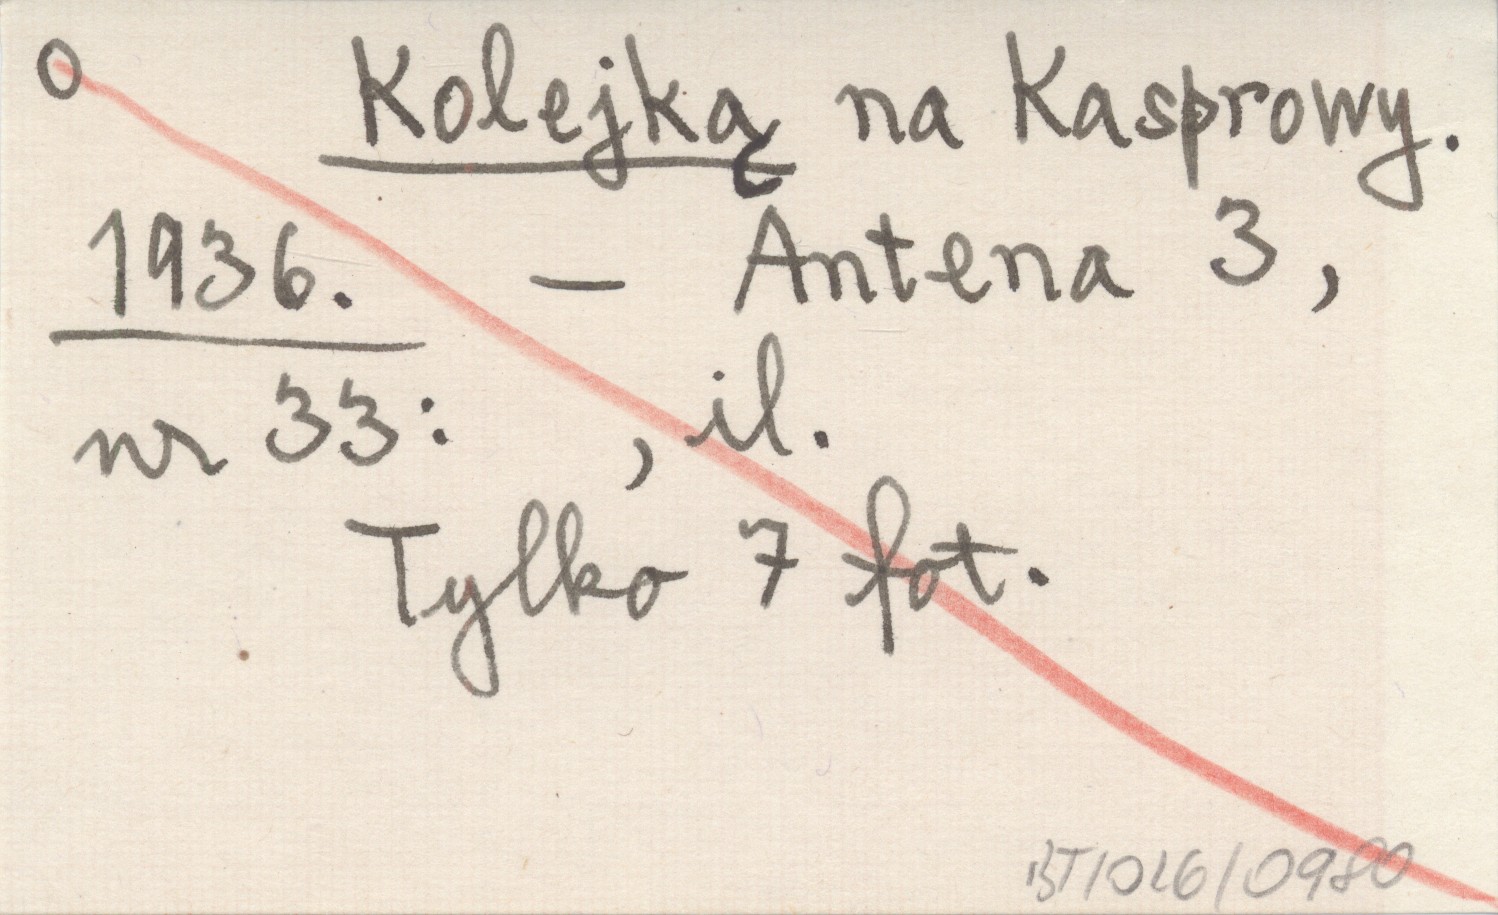 O Kolejką na Kasprowy.
1936. – Antena 3,
nr 33: , il.
Tylko 7 fot.
BT/026/0980